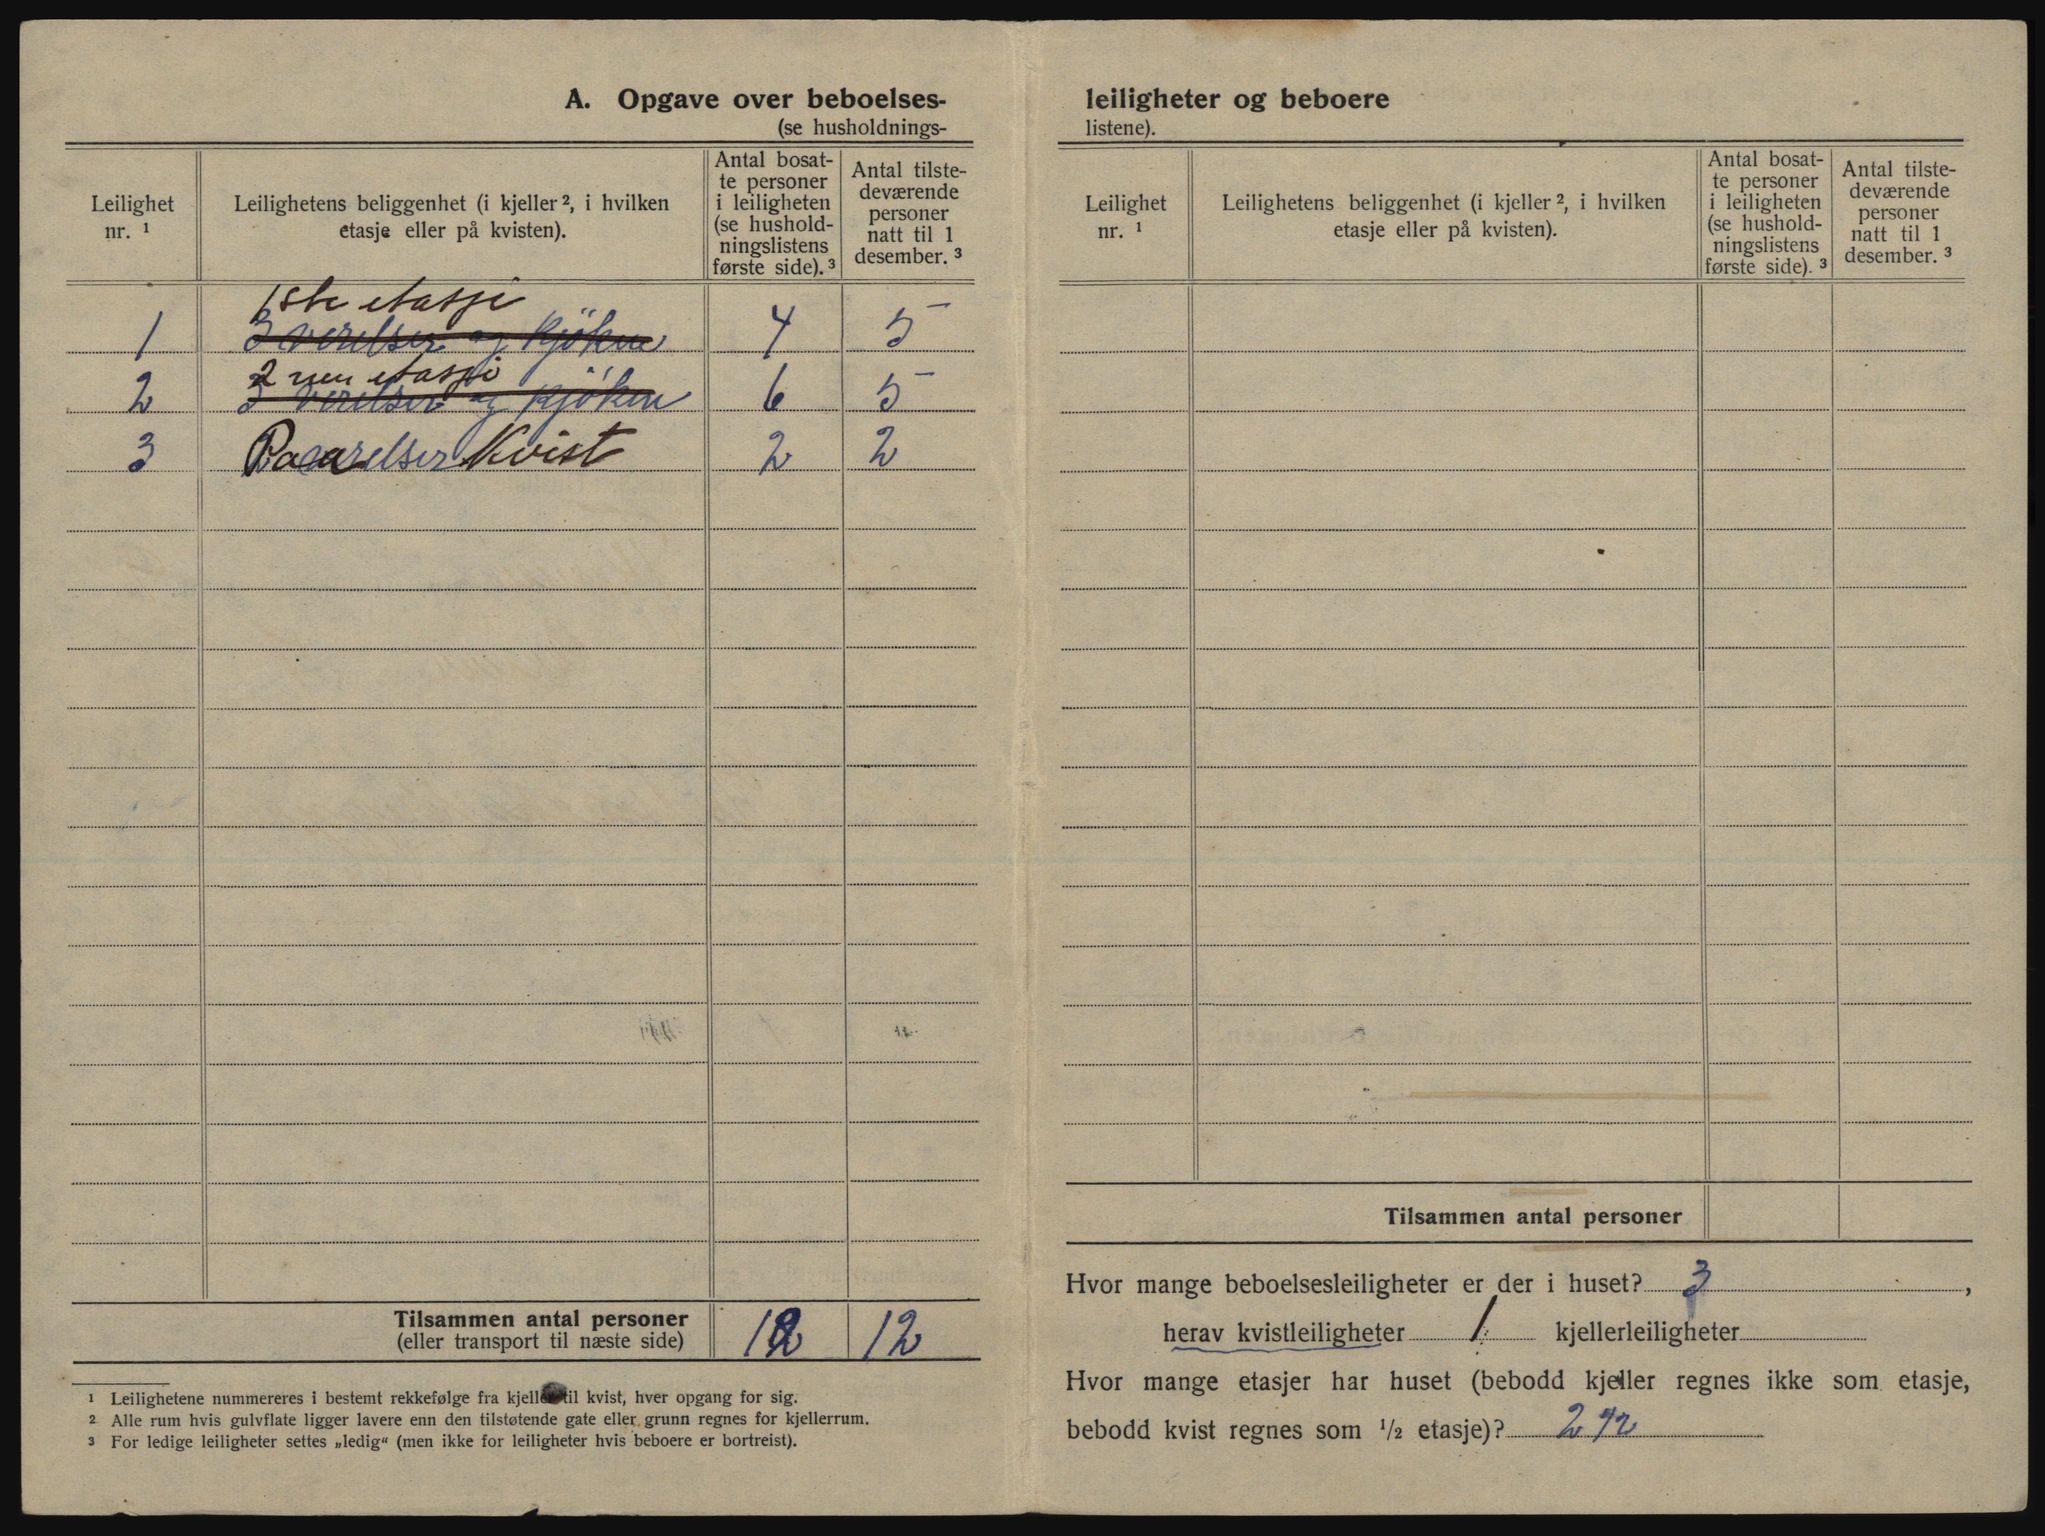 A. Opgave over beboelses-
(se husholdnings-
Leilighet
nr. ¹
Leilighetens beliggenhet (i kjeller ², i hvilken
etasje eller på kvisten).
Antal bosat-
te personer
i leiligheten
(se hushold-
ningslistens
første side). ³
Antal tilste-
deværende
personer
natt til 1
desember. ³
1ste etasje
1 3 verelser og kjøken 4 5
2nen etasje
2 3 verelser og kjøken 6 5
3 Paa verelser Kvist 2 2
Tilsammen antal personer
(eller transport til næste side)
12 12
¹ Leilighetene nummereres i bestemt rekkefølge fra kjeller til kvist, hver opgang for sig.
² Alle rum hvis gulvflate ligger lavere enn den tilstøtende gate eller grunn regnes for kjellerrum.
³ For ledige leiligheter settes „ledig“ (men ikke for leiligheter hvis beboere er bortreist).
leiligheter og beboere
listene).
Leilighet
nr. ¹
Leilighetens beliggenhet (i kjeller ², i hvilken
etasje eller på kvisten).
Antal bosat-
te personer
i leiligheten
(se hushold-
ningslistens
første side). ³
Antal tilste-
deværende
personer
natt til 1
desember. ³
Tilsammen antal personer
Hvor mange beboelsesleiligheter er der i huset? 3,
herav kvistleiligheter 1 kjellerleiligheter
Hvor mange etasjer har huset (bebodd kjeller regnes ikke som etasje,
bebodd kvist regnes som ½ etasje)? 2 ½